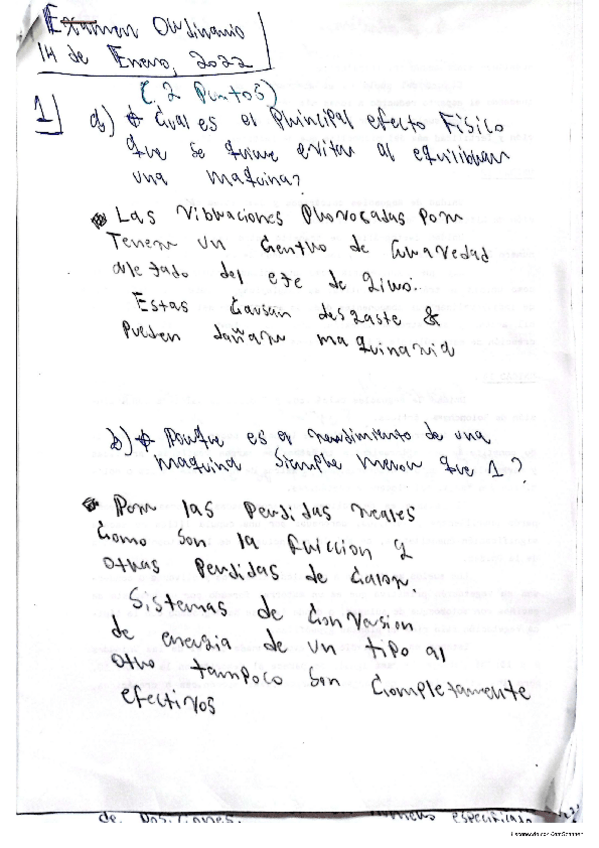 Examen Ordinario
14 de Enero, 2022
(.2 Puntos)
1] a) Cual es el principal efecto Fisico
que se quiere evitar al equilibrar
una maquina?
Las vibraciones provocadas por
Tener un Centro de Gravedad
alejado del eje de giro.
Estas Causan desgaste &
pueden dañar maquinaria
b) Porque es el rendimiento de una
maquina siempre menor que 1?
Por las perdidas reales
Como son la friccion y
otras perdidas de Calor.
Sistemas de Conversion
de energia de un tipo al
otro tampoco son Completamente
efectivos
de
especificado
Escaneado con CamScanner